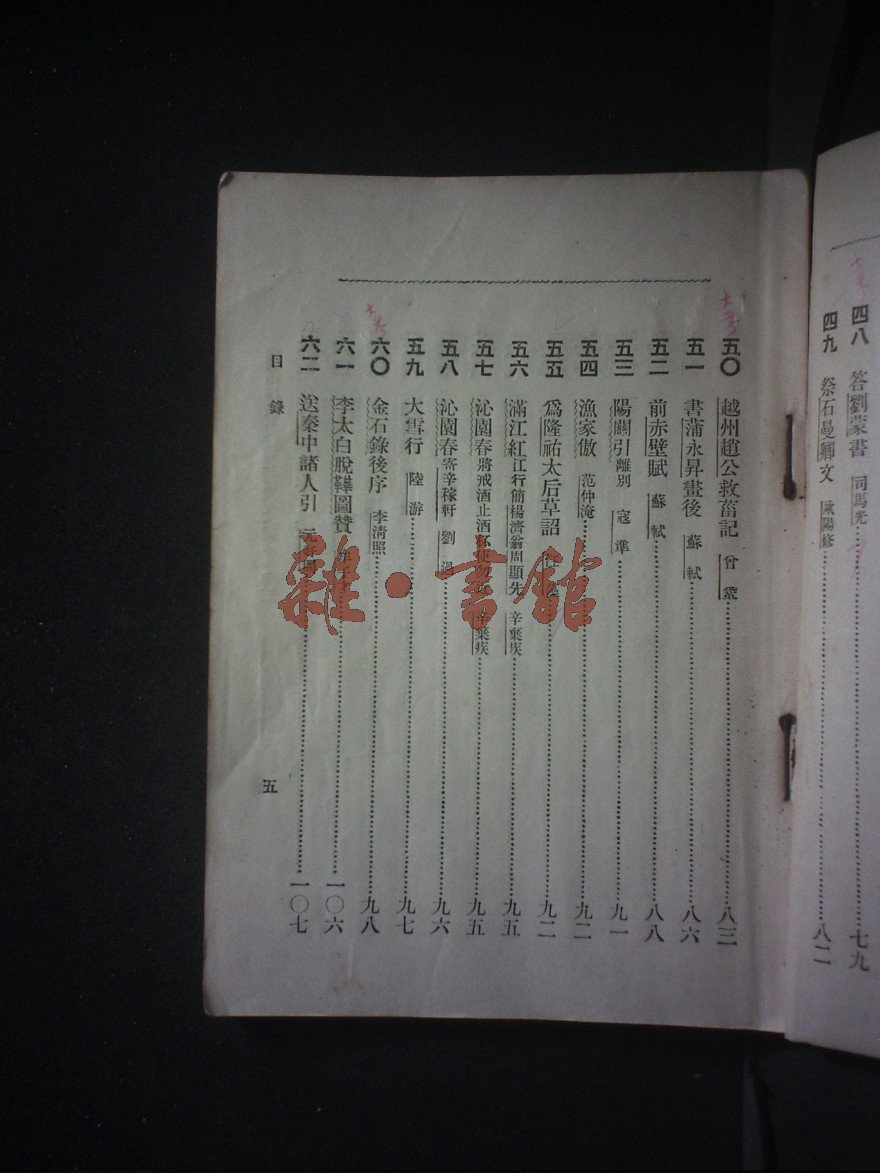 四八 答劉蒙書 司馬光……七九
四九 祭石曼卿文 歐陽修……八二
五〇 越州趙公救菑記 曾鞏……八三
五一 書蒲永昇畫後 蘇軾……八六
五二 前赤壁賦 蘇軾……八八
五三 陽關引離別 寇準……九一
五四 漁家傲 范仲淹……九二
五五 爲隆祐太后草詔……九二
五六 滿江紅江行簡楊濟翁周顯先 辛棄疾……九五
五七 沁園春將戒酒止酒杯使勿近 辛棄疾……九五
五八 沁園春寄辛稼軒 劉過……九六
五九 大雪行 陸游……九七
六〇 金石錄後序 李清照……九八
六一 李太白脫鞾圖贊……一〇六
六二 送秦中諸人引……一〇七
目錄
五
雜·書館